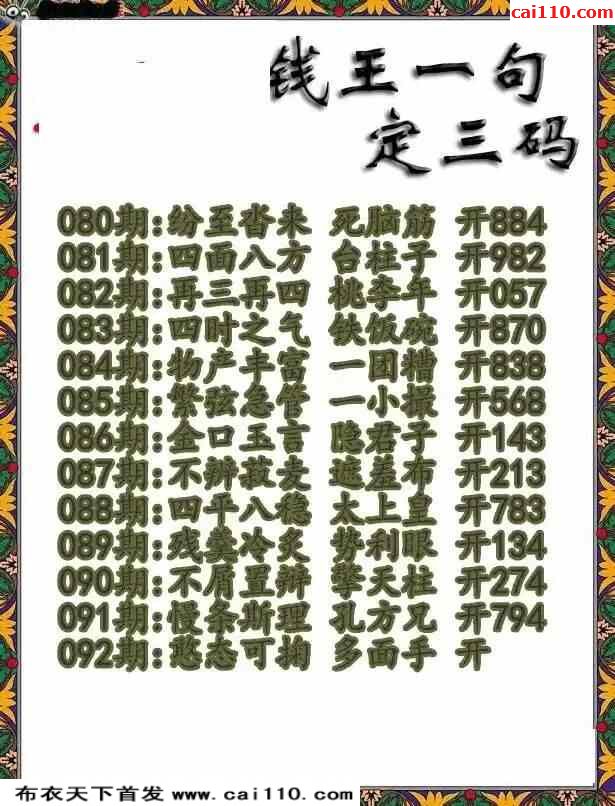 cai110.com
钱王一句
定三码
080期:纷至沓来 死脑筋 开884
081期:四面八方 台柱子 开982
082期:再三再四 桃李年 开057
083期:四时之气 铁饭碗 开870
084期:物产丰富 一团糟 开838
085期:繁弦急管 一小撮 开568
086期:金口玉言 隐君子 开143
087期:不辨菽麦 遮羞布 开213
088期:四平八稳 太上皇 开783
089期:残羹冷炙 势利眼 开134
090期:不屑置辩 擎天柱 开274
091期:慢条斯理 孔方兄 开794
092期:憨态可掬 多面手 开
布衣天下首发 www.cai110.com